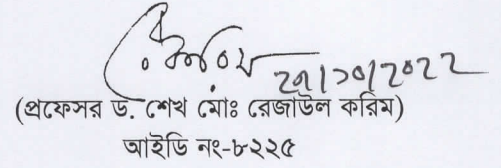 ২৭/১০/২০২২
(প্রফেসর ড. শেখ মোঃ রেজাউল করিম)
আইডি নং-৮২২৫